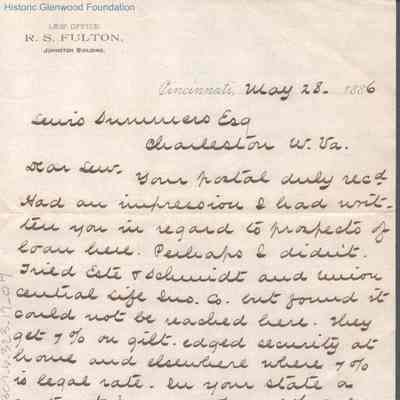 Historic Glenwood Foundation
LAW OFFICE
R. S. FULTON,
JOHNSTON BUILDING.
Cincinnati, May 28. 1886
Lewis Summers Esq
Charleston W. Va.
Dear Lew. Your postal duly recd
Had an impression I had writ-
ten you in regard to prospects of
loan here. Perhaps I didn't.
Tried Este & Schmidt and Union
Central Life Ins. Co. but found it
could not be reached here. They
get 7% on gilt-edged security at
home and elsewhere where 7%
is legal rate. In your state a